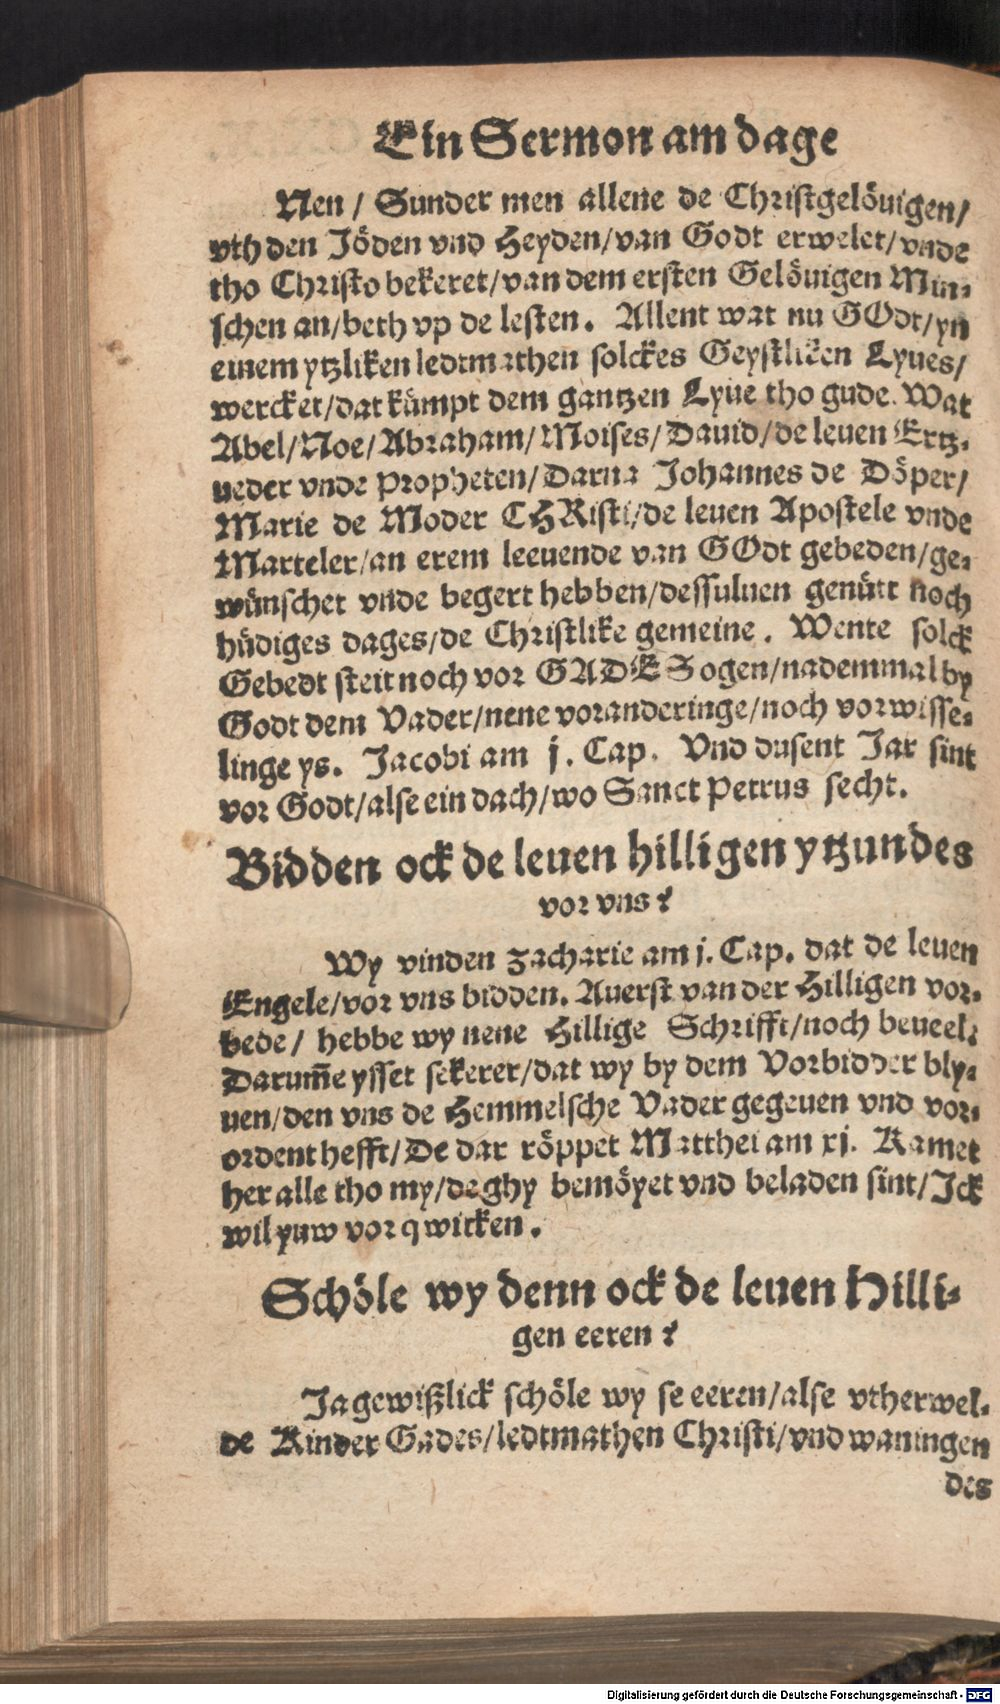 Ein Sermon am dage
Nen / Sunder men allene de Christgelöuigen/
vth den Jöden vnd Heyden/van Godt erwelet/vnde
tho Christo bekeret/van dem ersten Gelöuigen Min-
schen an/beth vp de lesten. Allent wat nu GOdt/yn
einem ytzliken ledtmathen solckes Geystliken Lyues/
wercket/dat kümpt dem gantzen Lyue tho gude. Wat
Abel/Noe/Abraham/Moises/Dauid/de leuen Ertz-
ueder vnde Propheten/Darna Johannes de Döper/
Marie de Moder CHRisti/de leuen Apostele vnde
Marteler/an erem leeuende van GOdt gebeden/ge-
wünschet vnde begert hebben/dessuluen genütt noch
hüdiges dages/de Christlike gemeine. Wente solck
Gebedt steit noch vor GADES ogen/nademmal by
Godt dem Vader/nene voranderinge/noch vorwisse-
linge ys. Jacobi am j. Cap. Vnd dusent Jar sint
vor Godt/alse ein dach/wo Sanct Petrus secht.
Bidden ock de leuen hilligen ytzundes
vor vns?
Wy vinden Zacharie am j. Cap. dat de leuen
Engele/vor vns bidden. Auerst van der Hilligen vor-
bede/ hebbe wy nene Hillige Schrifft/noch beueel:
Darum̃e ysset sekerer/dat wy by dem Vorbidder bly-
uen/den vns de Hemmelsche Vader gegeuen vnd vor-
ordent hefft/De dar röppet Matthei am xj. Kamet
her alle tho my/de ghy bemöyet vnd beladen sint/Ick
wil yuw vorqwicken.
Schöle wy denn ock de leuen Hilli-
gen eeren?
Ja gewißlick schöle wy se eeren/alse vtherwel-
de Kinder Gades/ledtmathen Christi/vnd waningen
des
Digitalisierung gefördert durch die Deutsche Forschungsgemeinschaft - DFG